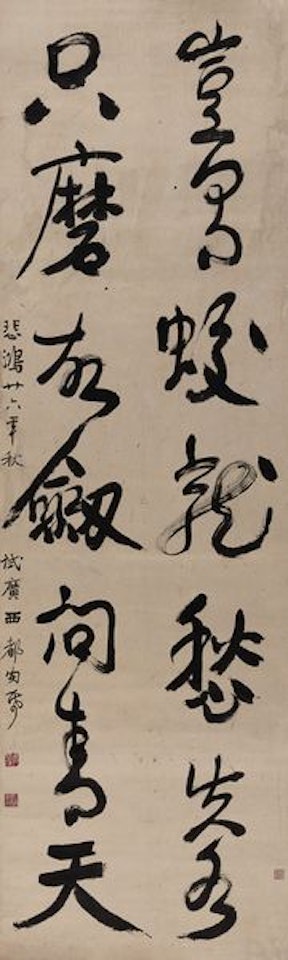 豈為蛟龍愁失水
只磨劍問青天
悲鴻廿六年秋 試廣西都安紙